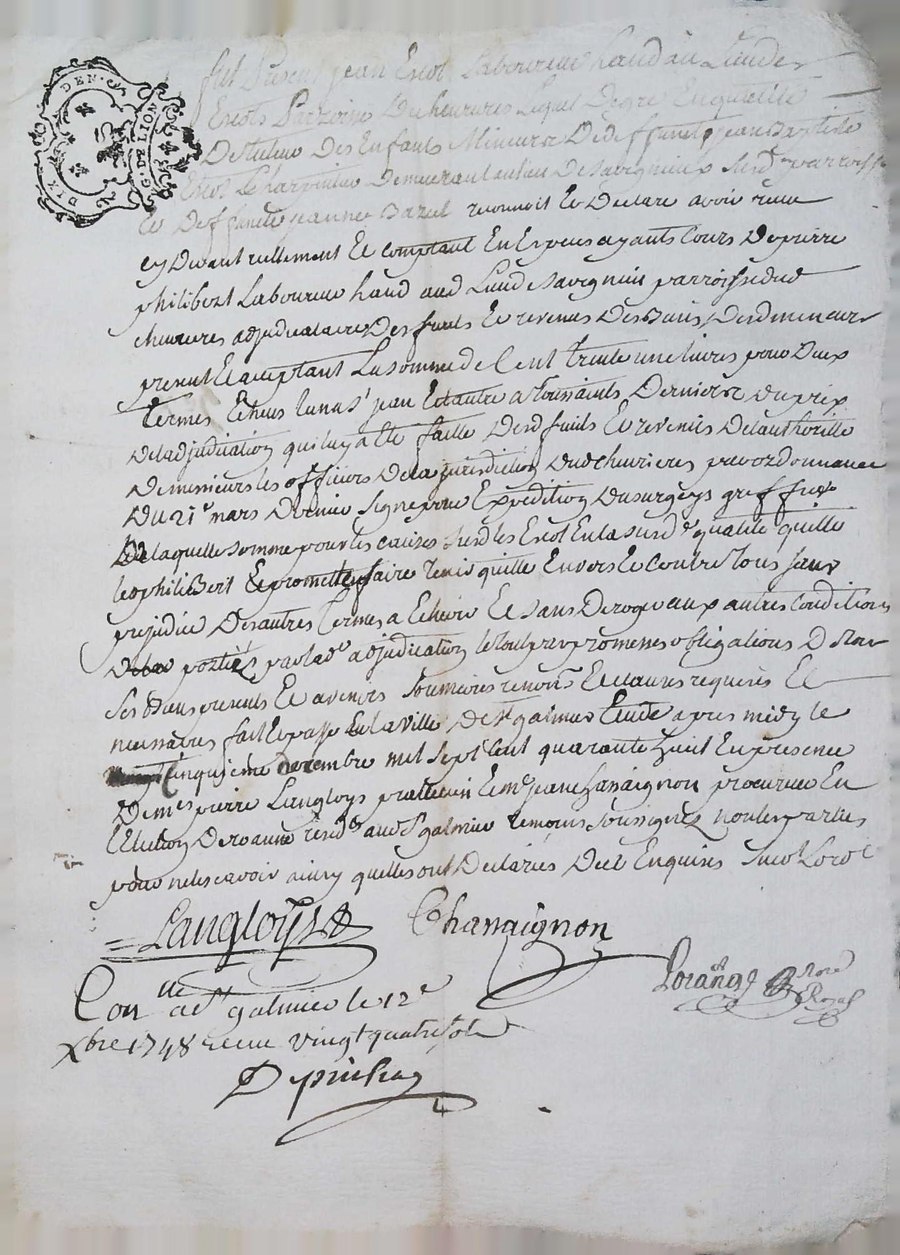 DIX DEN.
G. DE LION
fut Present Jean Escot Laboureur hand au Lieu des
Escots Parroisse De cheurieres Lequel De gre En qualitte
De tuteur Des Enfants Mineurs De deffunct jean Baptiste
Escot Charpentier Demeurant au lieu De Savignieu susd parroisse
Et Deffuncte jeanne Bazet reconnoit Et Declare avoir receu
cy Devant reellement Et comptant En Especes ayants Cours De pierre
philibert Laboureur hand aud Lieu de Savignieu parroisse dud
cheurieres adjudicataire Des fruits Et revenus Des Biens Desd mineurs
present Et acceptant La somme de Cent trente une livres pour Deux
termes Echeus Lun a St jean Et lautre a toussaints Dernier Du prix
De ladjudication qui luy a Ete faitte Desd fruits Et revenus De lauthoritte
De messieurs les officiers De la jurisdiction Dud cheurieres par ordonnance
Du 21e mars Dernier signe pour Expedition Dusurgeys greffier
De laquelle somme pour les causes susd led Escot En la susd qualite quitte
led philibert Et promet len faire tenir quitte Envers Et Contre tous sans
prejudice Des autres termes a Echeoir Et sans Deroger aux autres Conditions
portees par lad adjudication le tout par promesses obligations De tous
Ses Biens presents Et avenirs soumissions renons Et clauses requises Et
necessaires fait Et passe En la ville De St galmier Etude apres midy le
Cinquieme decembre mil sept Cent quarante huit En presence
De mes pierre Langloys praticien Et me jean Chassaignon procureur En
lElection De roanne residts aud St galmier temoins Soussignez non les parties
pour ne le scavoir ainsy quelles ont Declarees De ce Enquises
Langloys
Chassaignon
Lorange Nore Royal
Con lle a St galmier le 12e
Xbre 1748 receu vingt quatre sols